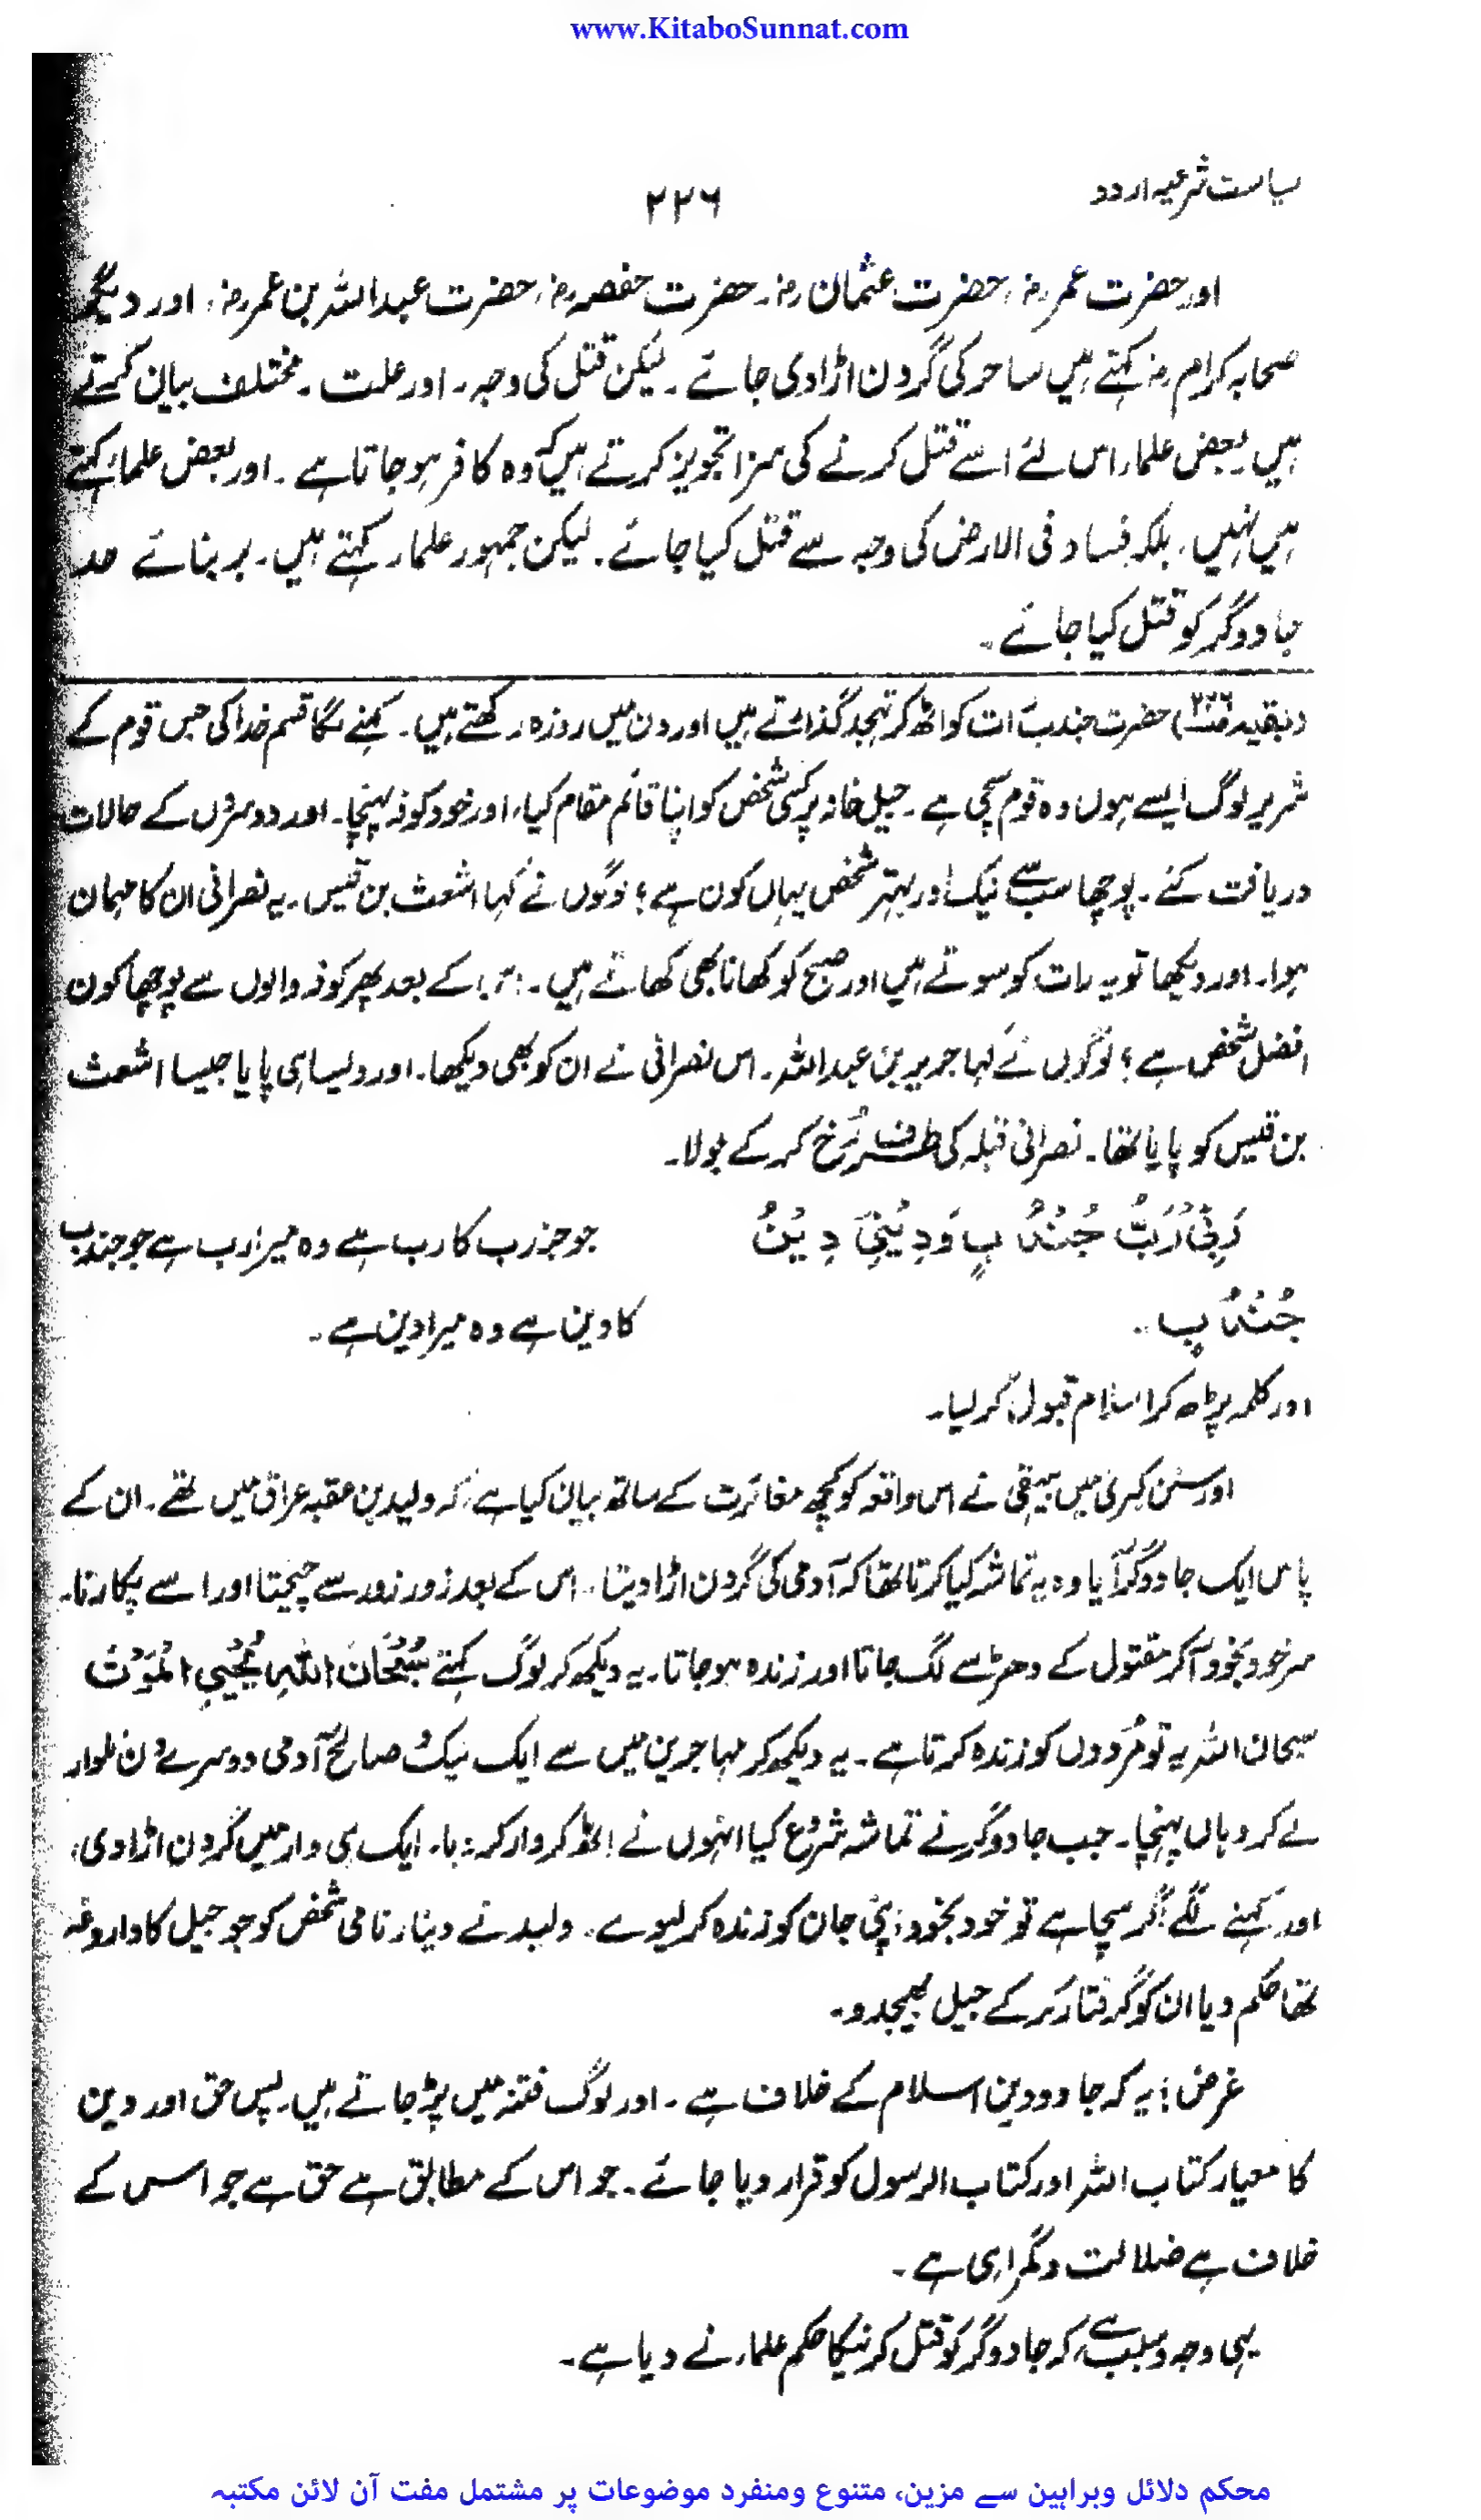 www.KitaboSunnat.com
سیاست شرعیہ اردو
۲۲۶
اور حضرت عمر رضہ، حضرت عثمان رضہ۔ حضرت حفصہ رضہ، حضرت عبداللہ بن عمر رضہ، اور دیگر
صحابہ کرام رضہ کہتے ہیں ساحر کی گردن اڑا دی جائے۔ لیکن قتل کی وجہ۔ اور علت۔ مختلف بیان کرتے
ہیں بعض علماء اس لئے اسے قتل کرنے کی سزا تجویز کرتے ہیں کہ وہ کافر ہو جاتا ہے۔ اور بعض علماء کہتے
ہیں نہیں، بلکہ فساد فی الارض کی وجہ سے قتل کیا جائے۔ لیکن جمہور علماء کہتے ہیں۔ بر بنائے حد
جادوگر کو قتل کیا جائے۔
(بقیہ حضرت جندب رات کو اٹھ کر تہجد گذارتے ہیں اور دن میں روزہ رکھتے ہیں۔ کہنے لگا قسم خدا کی جس قوم کے
شریر لوگ ایسے ہوں وہ قوم سچی ہے۔ جیل خانہ پر کسی شخص کو اپنا قائم مقام کیا، اور خود کوفہ پہنچا۔ اور دوسروں کے حالات
دریافت کئے۔ پوچھا سب سے نیک اور بہتر شخص یہاں کون ہے؟ لوگوں نے کہا اشعث بن قیس۔ یہ نصرانی ان کا مہمان
ہوا۔ اور دیکھا تو یہ رات کو سوتے ہیں اور صبح کو کھانا بھی کھاتے ہیں۔ اس کے بعد پھر کوفہ والوں سے پوچھا کون
افضل شخص ہے؟ لوگوں نے کہا جریر بن عبداللہ۔ اس نصرانی نے ان کو بھی دیکھا۔ اور ویسا ہی پایا جیسا اشعث
بن قیس کو پایا تھا۔ نصرانی قبلہ کی طرف رُخ کر کے بولا۔
رَبِّیْ رَبُّ جُنْدُبٍ وَدِیْنِیْ دِیْنُ
جو جندب کا رب ہے وہ میرا رب ہے جو جندب
جُنْدُبٍ۔
کا دین ہے وہ میرا دین ہے۔
اور کلمہ پڑھ کر اسلام قبول کر لیا۔
اور سنن کبریٰ میں بیہقی نے اس واقعہ کو کچھ مغائرت کے ساتھ بیان کیا ہے، کہ ولید بن عقبہ عراق میں تھے۔ ان کے
پاس ایک جادوگر آیا وہ یہ تماشہ کیا کرتا تھا کہ آدمی کی گردن اڑا دیتا۔ اس کے بعد زور زور سے چیختا اور اسے پکارتا۔
سر خود بخود آ کر مقتول کے دھڑ سے لگ جاتا اور زندہ ہو جاتا۔ یہ دیکھ کر لوگ کہتے سُبْحَانَ اللّٰہِ یُحْیِی الْمَوْتٰ
سبحان اللہ یہ تو مُردوں کو زندہ کرتا ہے۔ یہ دیکھ کر مہاجرین میں سے ایک نیک صالح آدمی دوسرے دن تلوار
لے کر وہاں پہنچا۔ جب جادوگر نے تماشہ شروع کیا انہوں نے اٹھ کر وار کر دیا۔ ایک ہی وار میں گردن اڑا دی،
اور کہنے لگے اگر سچا ہے تو خود بخود اپنی جان کو زندہ کر لیوے۔ ولید نے دینار نامی شخص کو جو جیل کا داروغہ
تھا حکم دیا ان کو گرفتار کر کے جیل بھیجدو۔
غرض! یہ کہ جادو دین اسلام کے خلاف ہے۔ اور لوگ فتنہ میں پڑ جاتے ہیں۔ پس حق اور دین
کا معیار کتاب اللہ اور کتاب الرسول کو قرار دیا جائے۔ جو اس کے مطابق ہے حق ہے جو اس کے
خلاف ہے ضلالت و گمراہی ہے۔
یہی وجہ و سبب ہے کہ جادوگر کو قتل کرنیکا حکم علماء نے دیا ہے۔
محکم دلائل وبراہین سے مزین، متنوع ومنفرد موضوعات پر مشتمل مفت آن لائن مکتبہ